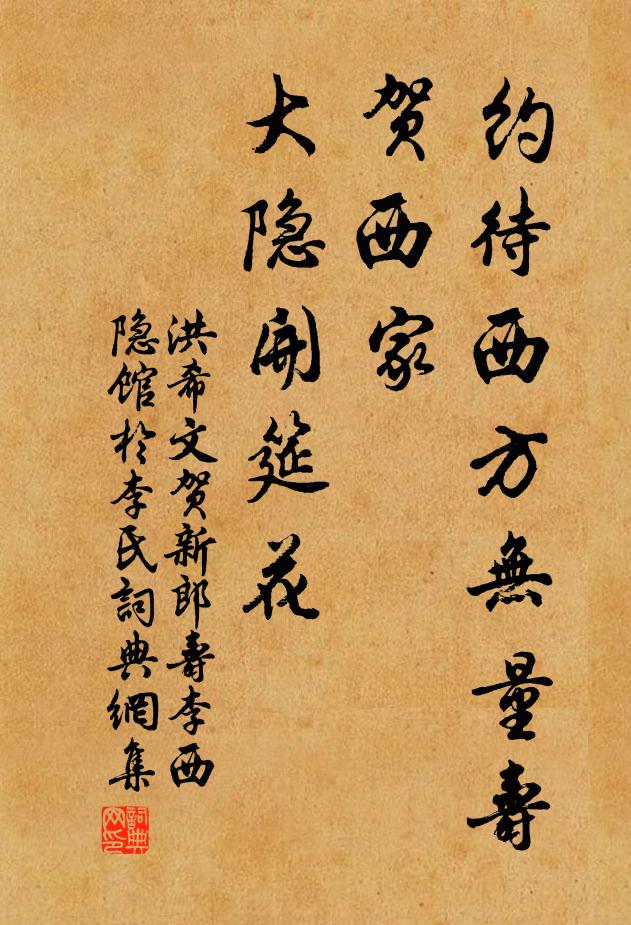 约待西方無量壽
贺西家
大隐開筵花
洪希文贺新郎壽李西
隐馆於李氏詞典網集
詞典
网印